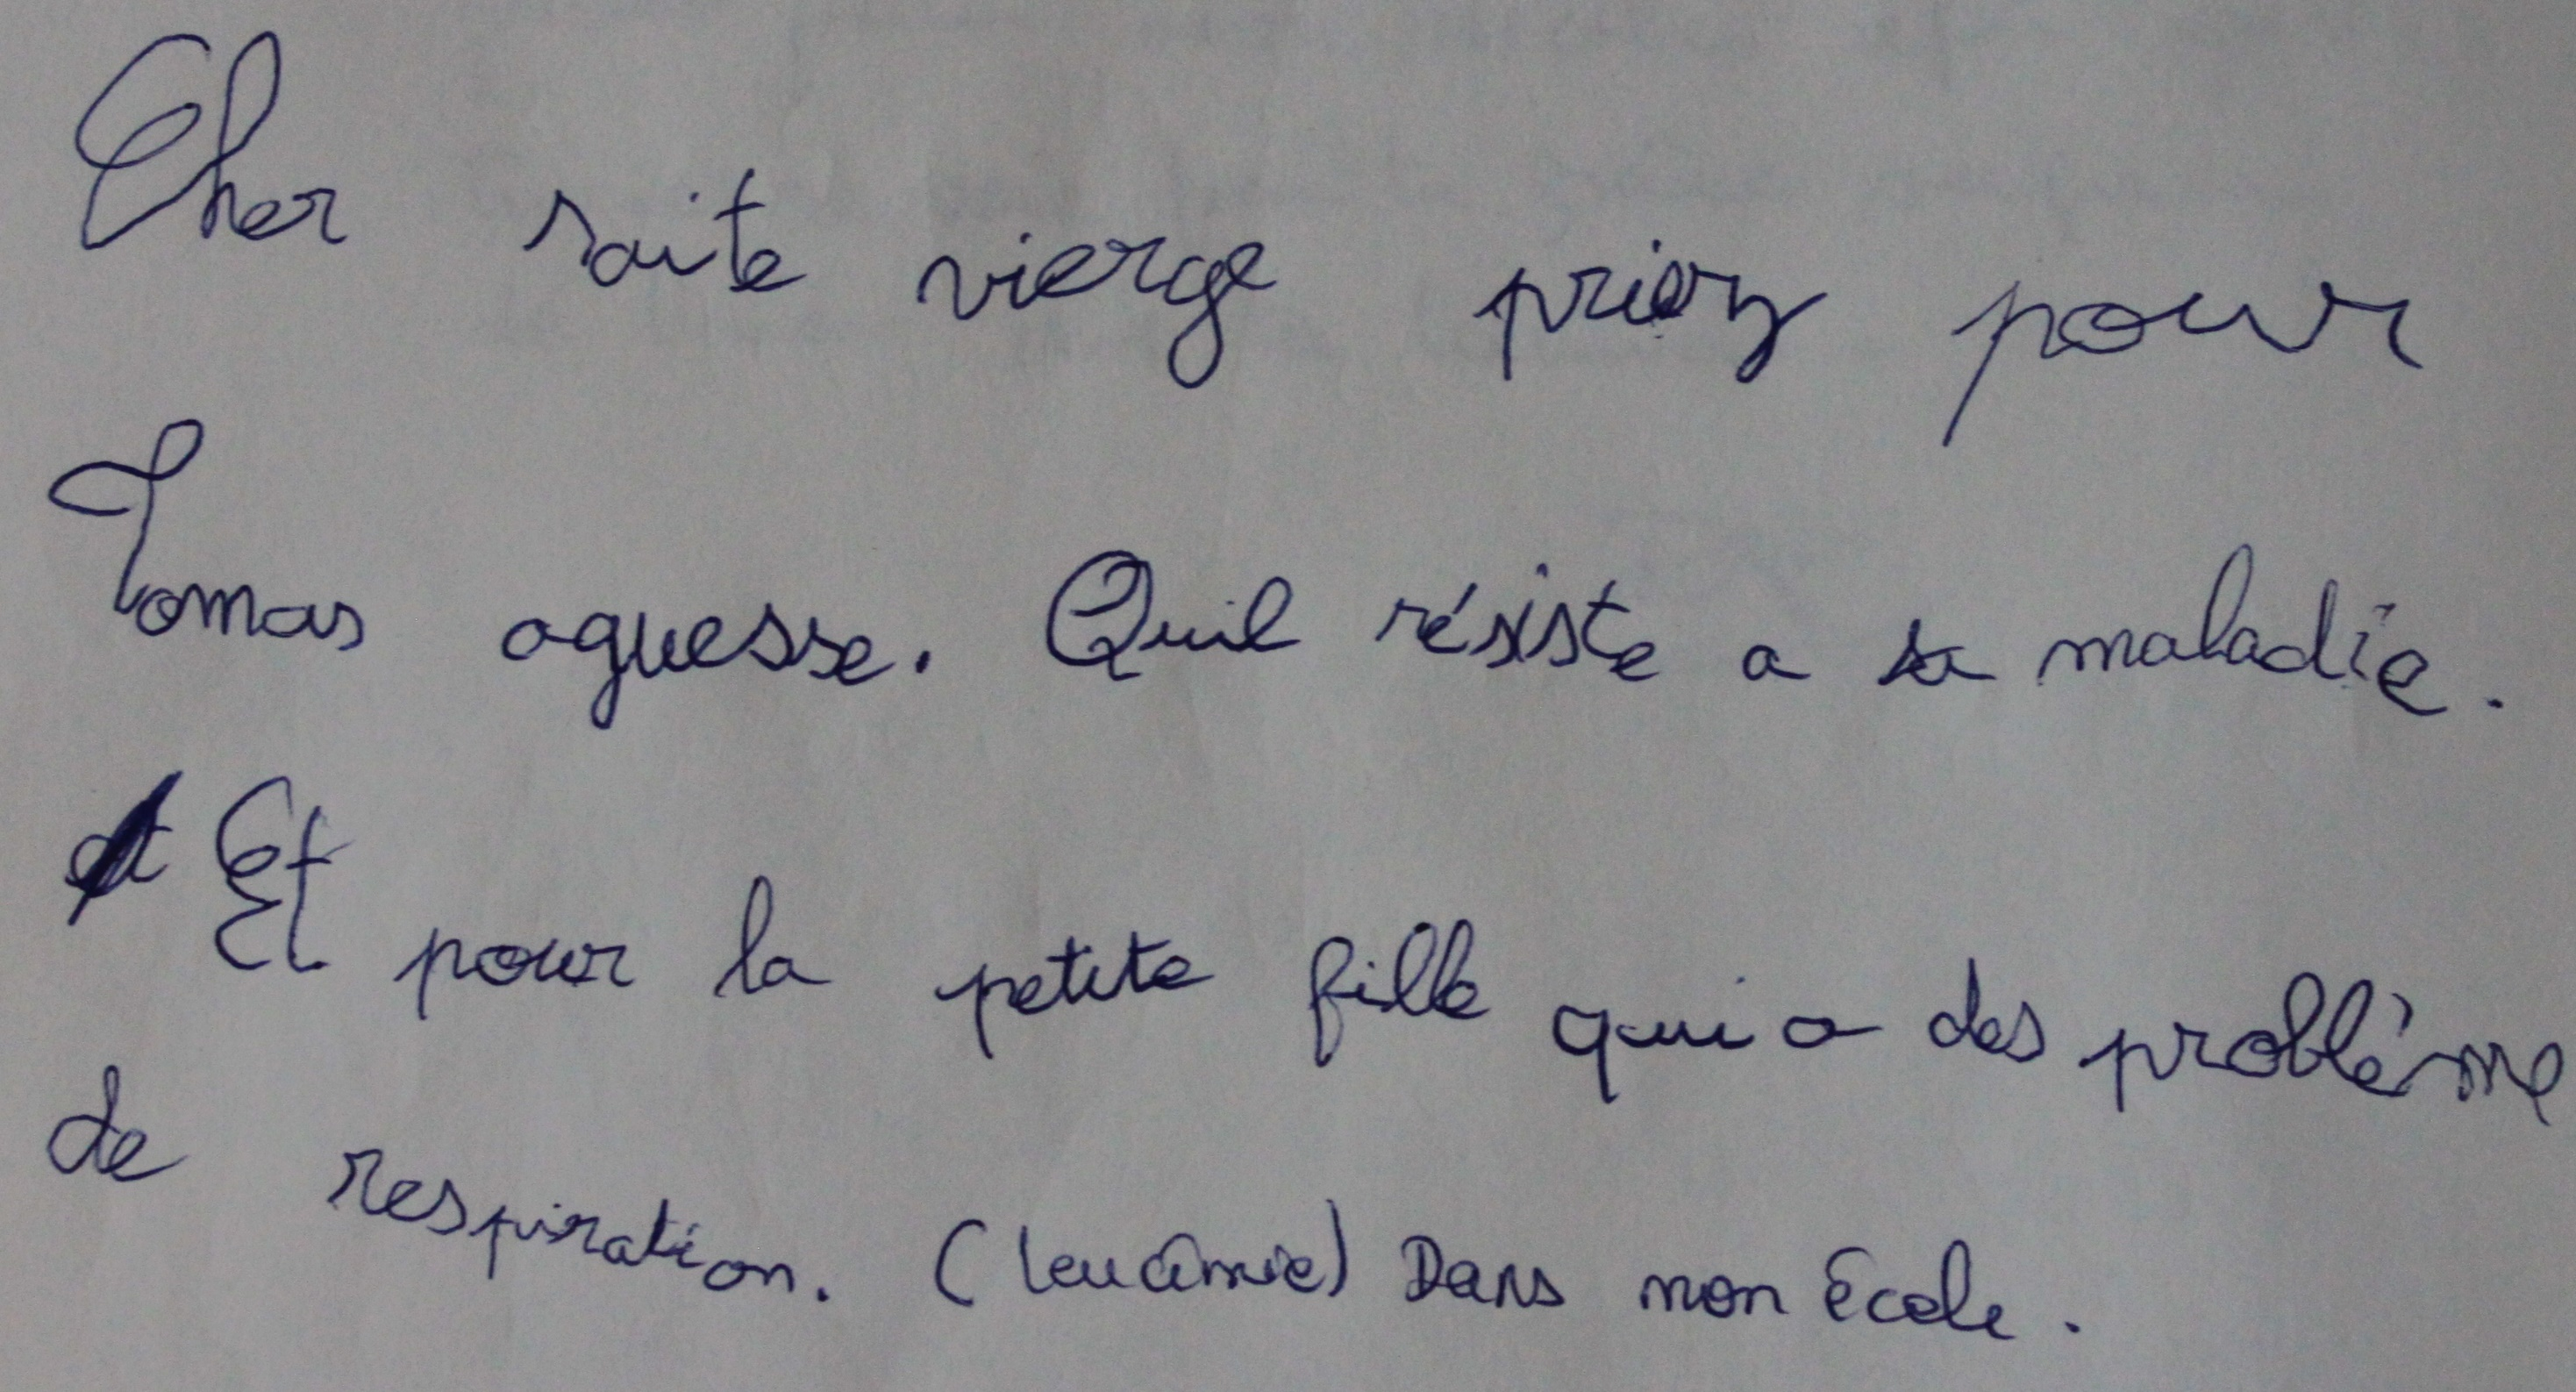 Cher saite vierge priez pour
Tomas aguesse. Quil résiste a sa maladie.
Et pour la petite fille qui a des problème
de respiration. (leucémie) Dans mon école.